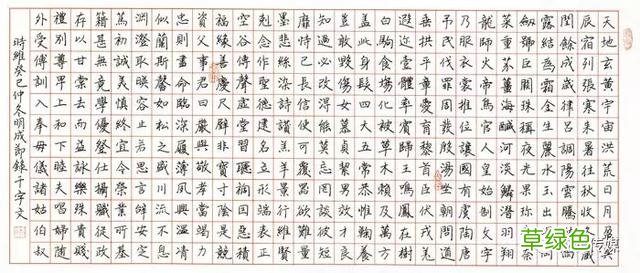 天地玄黃宇宙洪荒日月盈昃
辰宿列張寒來暑往秋收冬藏
閏餘成歲律呂調陽雲騰致雨
露結為霜金生麗水玉出崑岡
劍號巨闕珠稱夜光果珍李柰
菜重芥薑海鹹河淡鱗潛羽翔
龍師火帝鳥官人皇始制文字
乃服衣裳推位讓國有虞陶唐
弔民伐罪周發殷湯坐朝問道
垂拱平章愛育黎首臣伏戎羌
遐邇壹體率賓歸王鳴鳳在樹
白駒食場化被草木賴及萬方
蓋此身髮四大五常恭惟鞠養
豈敢毀傷女慕貞絜男效才良
知過必改得能莫忘罔談彼短
靡恃己長信使可覆器欲難量
墨悲絲染詩讚羔羊景行維賢
克念作聖德建名立形端表正
空谷傳聲虛堂習聽禍因惡積
福緣善慶尺璧非寶寸陰是競
資父事君曰嚴與敬孝當竭力
忠則盡命臨深履薄夙興溫凊
似蘭斯馨如松之盛川流不息
淵澄取映容止若思言辭安定
篤初誠美慎終宜令榮業所基
籍甚無竟學優登仕攝職從政
存以甘棠去而益詠樂殊貴賤
禮別尊卑上和下睦夫唱婦隨
外受傅訓入奉母儀諸姑伯叔
時維癸巳仲冬明成節錄千字文
草绿色
传媒